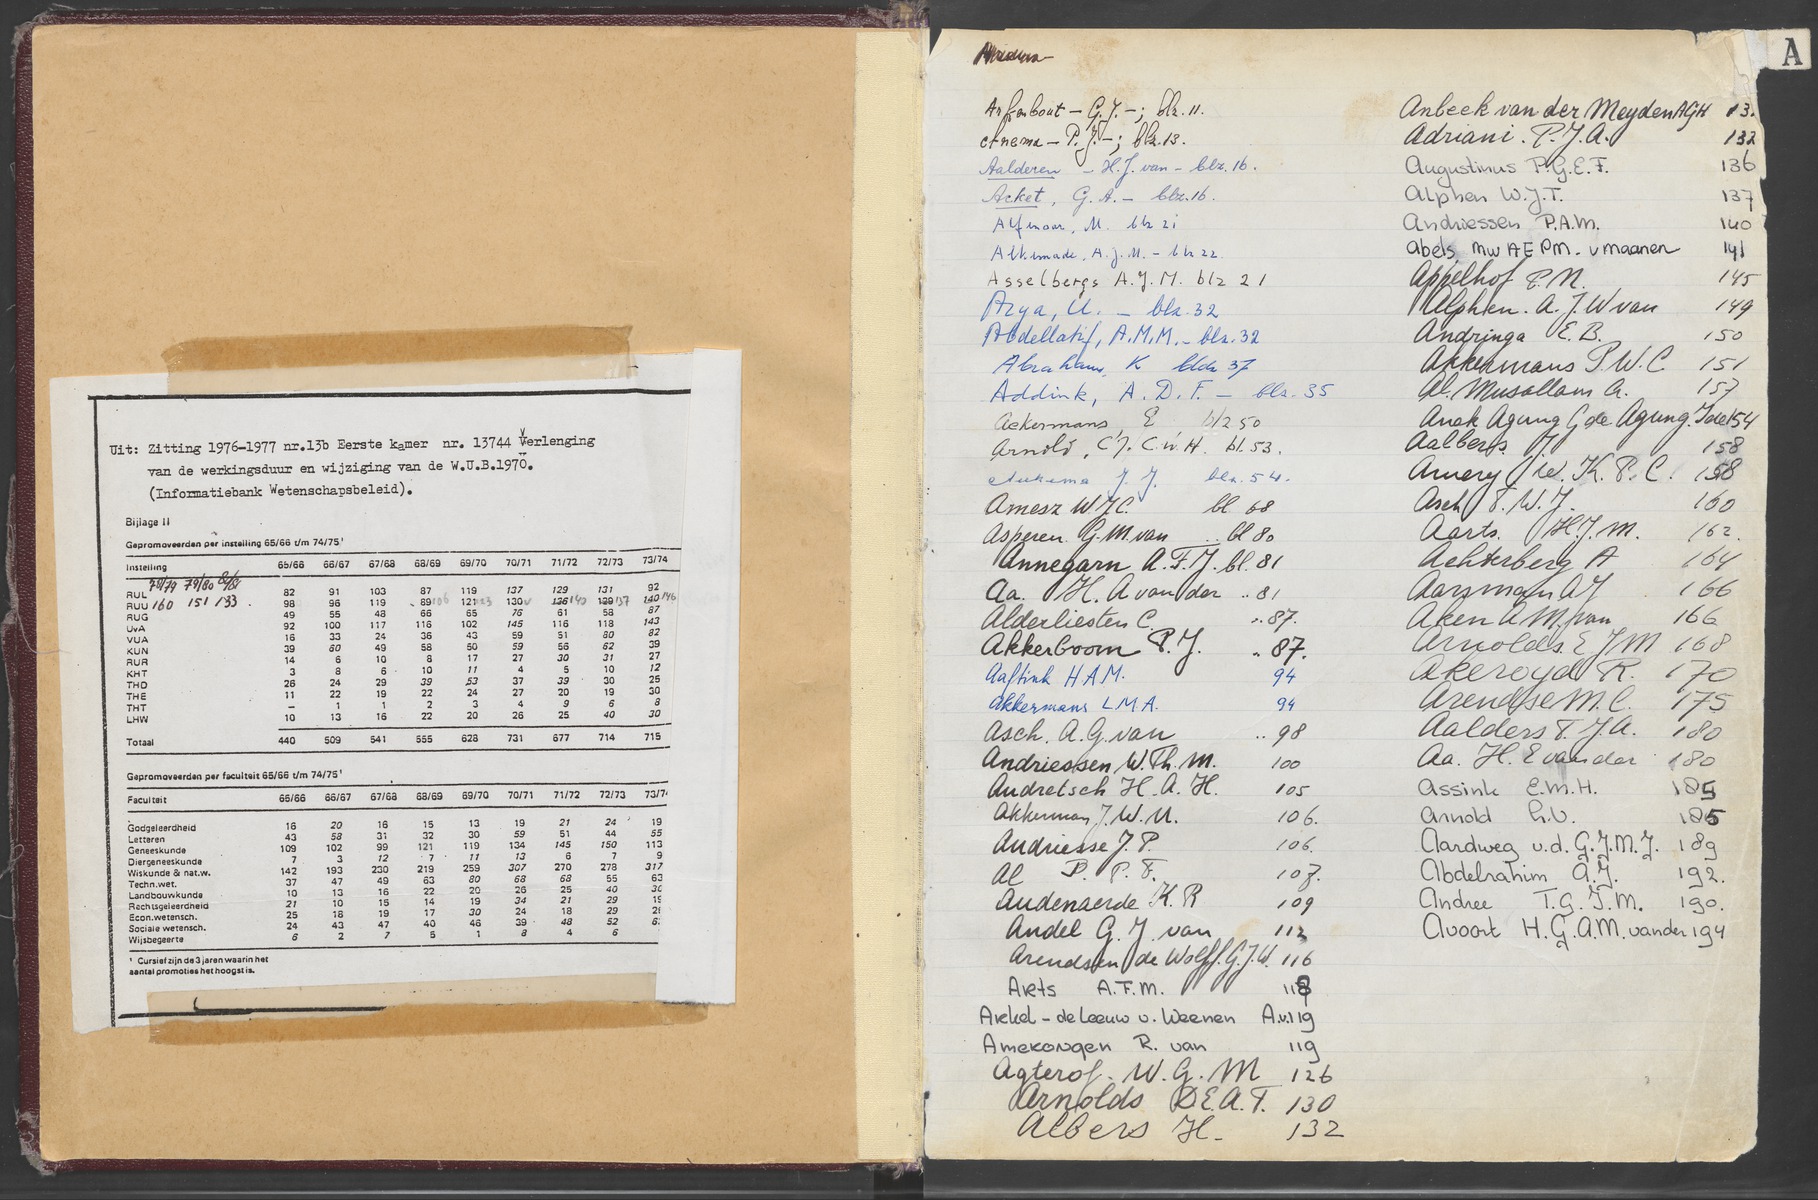 Uit: Zitting 1976-1977 nr.13b Eerste kamer nr. 13744 Verlenging
van de werkingsduur en wijziging van de W.U.B.1970.
(Informatiebank Wetenschapsbeleid).
Bijlage II
Gepromoveerden per instelling 65/66 t/m 74/75¹
Instelling 65/66 66/67 67/68 68/69 69/70 70/71 71/72 72/73 73/74
78/79 79/80
RUL 82 91 103 87 119 137 129 131 92
RUU 160 151 133 98 96 119 89 121 130 136 140 129 137 140 146
RUG 49 55 48 66 65 76 61 58 87
UvA 92 100 117 116 102 145 116 118 143
VUA 16 33 24 36 43 59 51 80 82
KUN 39 60 49 58 50 59 56 62 39
RUR 14 6 10 8 17 27 30 31 27
KHT 3 8 6 10 11 4 5 10 12
THD 26 24 29 39 53 37 39 30 25
THE 11 22 19 22 24 27 20 19 30
THT – 1 1 2 3 4 9 6 8
LHW 10 13 16 22 20 26 25 40 30
Totaal 440 509 541 555 628 731 677 714 715
Gepromoveerden per faculteit 65/66 t/m 74/75¹
Faculteit 65/66 66/67 67/68 68/69 69/70 70/71 71/72 72/73
Godgeleerdheid 16 20 16 15 13 19 21 24 19
Letteren 43 58 31 32 30 59 51 44 55
Geneeskunde 109 102 99 121 119 134 145 150 113
Diergeneeskunde 7 3 12 7 11 13 6 7 9
Wiskunde & nat.w. 142 193 230 219 259 307 270 278 317
Techn.wet. 37 47 49 63 80 68 68 55 63
Landbouwkunde 10 13 16 22 20 26 25 40
Rechtsgeleerdheid 21 10 15 14 19 34 21 29
Econ.wetensch. 25 18 19 17 30 24 18 29
Sociale wetensch. 24 43 47 40 46 39 48 52
Wijsbegeerte 6 2 7 5 1 8 4 6
¹ Cursief zijn de 3 jaren waarin het
aantal promoties het hoogst is.
A
G.J.–; blz. 11.
P.J.–; blz. 13.
Aalderen – H.J. van – blz. 16.
Acket, G.A. – blz. 16.
M. blz 21
Alkemade, A.J.M. – blz 22
Asselbergs A.J.M. blz 21
Arya, U. – blz. 32
Abdellatif, A.M.M. – blz. 32
Abraham, K 37
Addink, A.D.F. – blz. 35
Ackermans, E blz 50
Arnold, bl. 53.
J.J. blz. 54.
Amesz W.J.C. bl 68
Asperen G.M. van bl 80
Annegarn A.F.J. bl. 81
Aa. H.A van der " 81
Alderliesten C. " 87.
Akkerboom P.J. " 87.
Aaftink H A M. 94
Akkermans L.M.A. 94
Asch. A.G. van " 98
Andriessen W.Th.M. 100
Andretsch H.A.H. 105
Akkerman J.W.M. 106.
Andriesse J.P. 106.
Al P.P.F. 107.
Audenaerde K.R 109
Andel G.J. van 112
Arendsen de Wolff. G.J.W. 116
Arts A.F.M. 118
Arkel – de Leeuw v. Weenen A.v. 119
Amerongen R. van 119
Agterof. W.G.M 126
Arnolds D.E.A.T. 130
Albers H. 132
Anbeek van der Meyden AGH 13.
Adriani. P.J.A. 132
Augustinus P.G.E.F. 136
Alphen W.J.T. 137
Andriessen P.A.M. 140
Abels, mw AEPM. v maanen 141
Appelhof P.N. 145
Alphen. A.J.W van 149
Andringa E.B. 150
Akkermans P.W.C. 151
Al. Musallam A. 157
Anak Agung Gde Agung. Ide 154
Aalbers. J. 158
Amery W.K.P.C. 158
Asch F.W.J. 160
Aarts. H.J.M. 162.
Achterberg A 164
Aarsman A J 166
Aken A M van 166
Arnolds E J M 168
Akeroyd R. 170
Arendse M.C. 175
Aalders T.J.A. 180
Aa. H.E van der 180
Assink E.M.H. 185
Arnold h.v. 185
Aardweg v.d. G.J.M.J. 189
Abdelrahim A.J. 192.
Andree T.G.J.M. 190.
Avoort H.G.A.M. van der 194